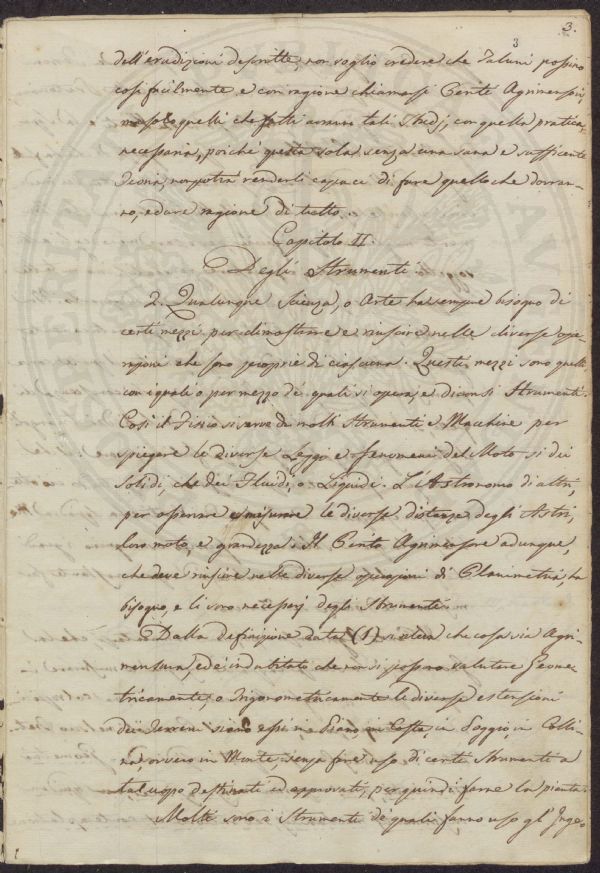 3.
3
dell'erudizioni descritte, non voglio credere che Taluni possino
così facilmente e con ragione chiamarsi Periti Agrimensori,
ma solo quelli che fatti avranno tali Studj, con quella pratica
necessaria, poichè questa sola senza una sana e sufficente
Teoria, non potrà renderli capaci di fare quello che dovran-
no, e dare ragione di tutto.
Capitolo II.
Degli Strumenti.
2. Qualunque Scienza, o Arte ha sempre bisogno di
certi mezzi per dimostrare e riuscire nelle diverse ope-
razioni che sono proprie di ciascuna. Questi mezzi sono quelli
con i quali o per mezzo de quali si opera, e diconsi Strumenti.
Così il Fisico si serve di molti Strumenti e Macchine per
spiegare le diverse Leggi e Fenomeni del Moto sì dei
Solidi, che dei Fluidi, o Liquidi. L'Astronomo di altri,
per osservare e misurare le diverse distanze degli Astri,
loro moto, e grandezza. Il Perito Agrimensore adunque,
che deve riuscire nelle diverse operazioni di Planimetria, ha
bisogno, e li sono necessarj degli Strumenti.
Dalla definizione data (1) si rileva che cosa sia Agri-
mensura, ed è indubitato che non si possono valutare Geome-
tricamente, o Trigonometricamente le diverse estensioni
dei Terreni siano essi in Piano, in Costa, in Poggio, in Colli-
na ovvero in Monte, senza fare uso di certi Strumenti a
tal uopo destinati ed approvati, per quindi farne la pianta.
Molti sono i Strumenti de quali fanno uso gl' Inge-